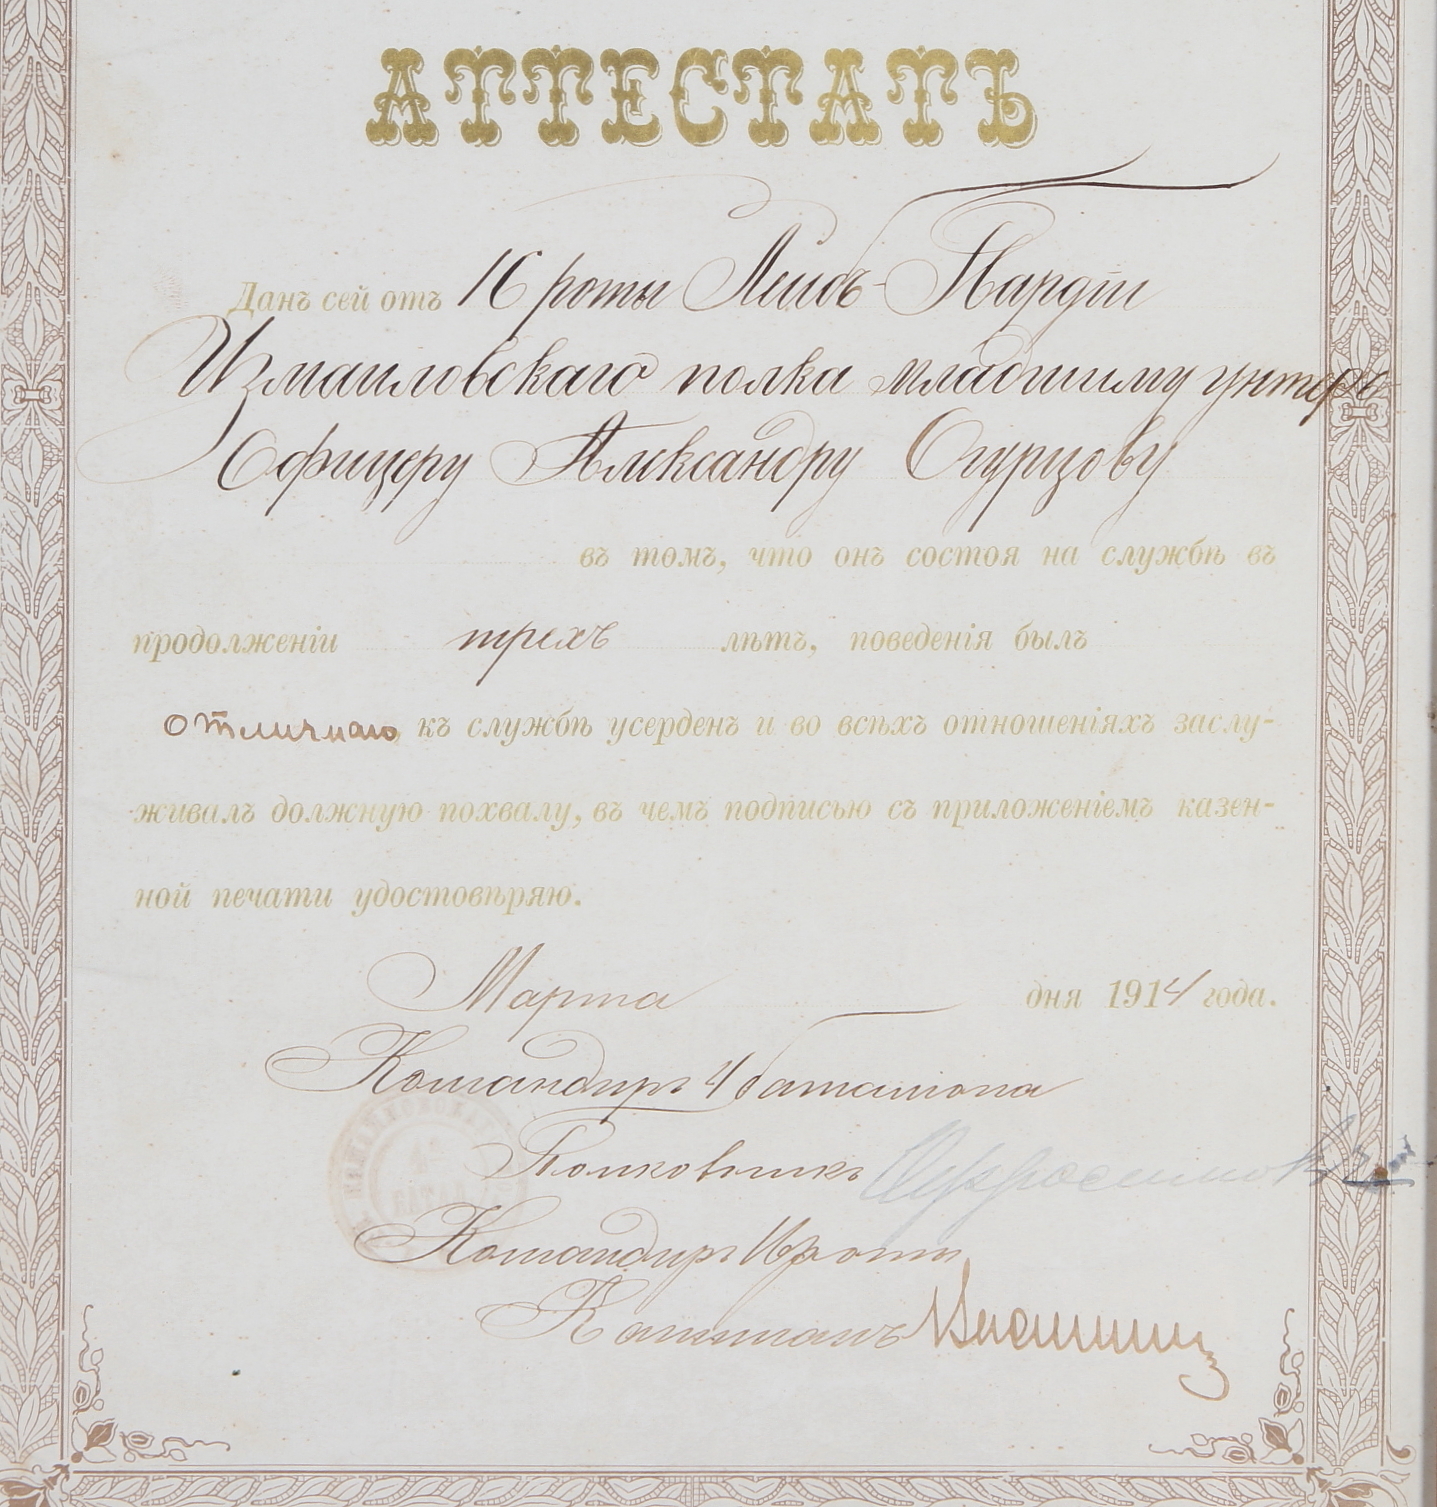 АТТЕСТАТЪ
Данъ сей отъ 16 роты Лейбъ-Гвардіи
Измаиловскаго полка младшиму унтеръ
Офицеру Александру Огурцову
въ томъ, что онъ состоя на службѣ въ
продолженіи трехъ лѣтъ, поведенія былъ
отличнаго къ службѣ усерденъ и во всѣхъ отношеніяхъ заслу-
живалъ должную похвалу, въ чемъ подписью съ приложеніемъ казен-
ной печати удостовѣряю.
Марта дня 1914 года.
Командиръ 4 баталіона
Полковникъ
Командиръ 16 роты
Капитанъ